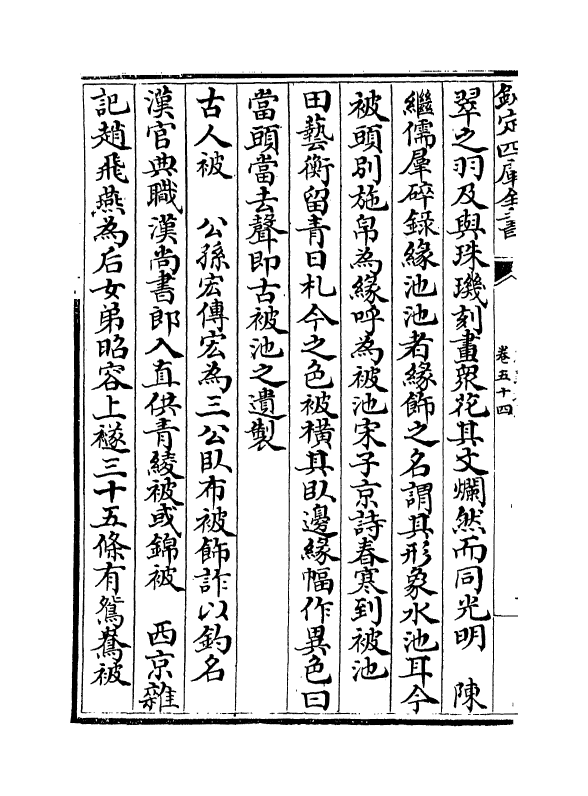 欽定四庫全書
卷五十四
翠之羽及與珠璣刻畫衆花其文爛然而同光明　陳
繼儒羣碎錄緣池池者緣飾之名謂其形象水池耳今
被頭別施帛為緣呼為被池宋子京詩春寒到被池
田藝衡留青日札今之色被橫其臥邊緣幅作異色曰
當頭當去聲即古被池之遺製
古人被　公孫宏傳宏為三公臥布被飾詐以釣名
漢官典職漢尚書郎入直供青綾被或錦被　西京雜
記趙飛燕為后女弟昭容上襚三十五條有鴛鴦被